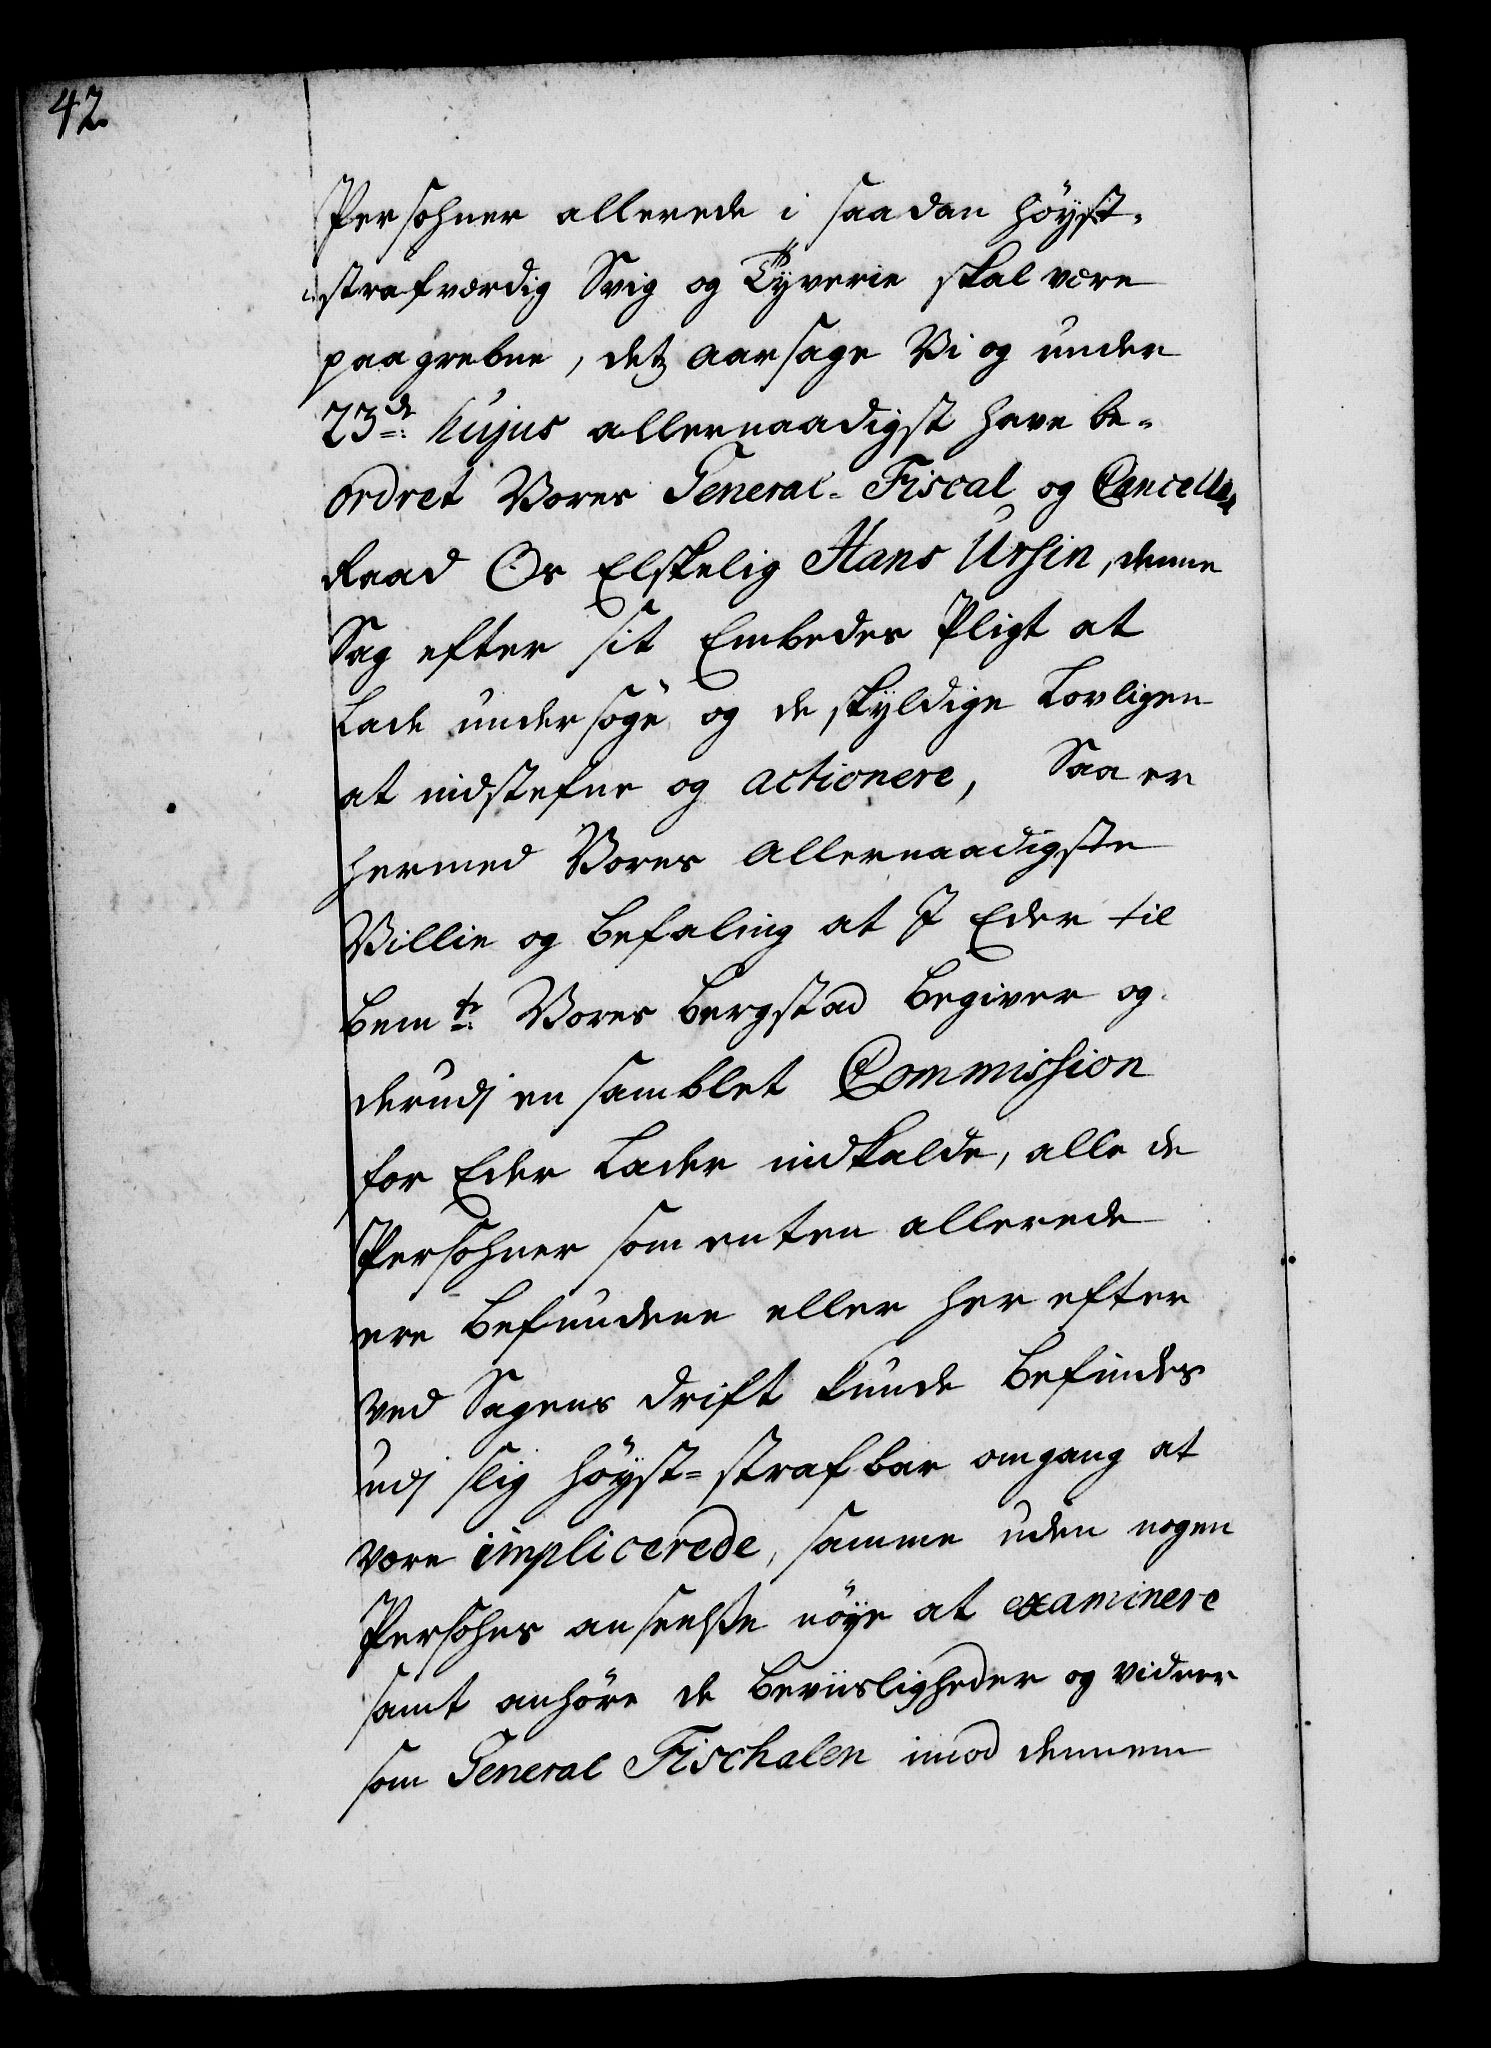 42.
Persohner allerede i saadan höyst-
strafværdig Svig og Tyverie skal være
paagrebne, detz aarsage Vi og under
23de hujus allernaadigst have be-
ordret Vores General-Fiscal og Cancellie
Raad Os Elskelig Hans Ursin, denne
Sag efter sit Embedes Pligt at
Lade undersöge og de skyldige Lovligen
at indstefne og actionere, Saa er
hermed Vores Allernaadigste
Villie og Befaling at I Eder til
bemte Vores bergstad begiver og
derudj en samblet Commission
for Eder Lader indkalde, alle de
Persohner som enten allerede
ere Befundene eller her efter
ved Sagens Drift kunde Befindes
udj slig höyst=strafbar omgang at
være implicerede, samme uden nogen
Persohns anseelse nöye at examinere
samt anhöre de Beviisligheder og videre
som General Fischalen imod dennem